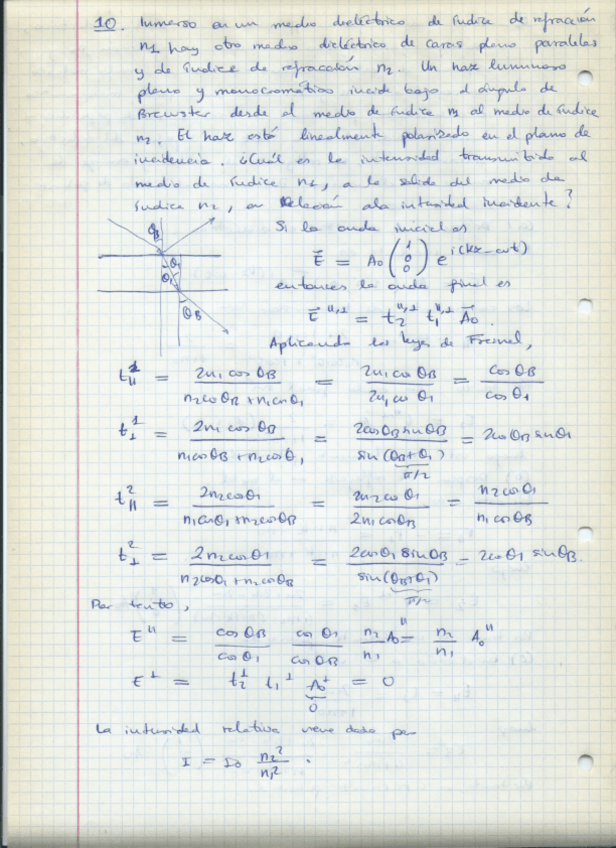 10. Inmerso en un medio dieléctrico de índice de refracción
n1 hay otro medio dieléctrico de caras plano paralelas
y de índice de refracción n2. Un haz luminoso
plano y monocromático incide bajo el ángulo de
Brewster desde el medio de índice n1 al medio de índice
n2. El haz está linealmente polarizado en el plano de
incidencia. ¿Cuál es la intensidad transmitida al
medio de índice n1, a la salida del medio de
índice n2, en relación a la intensidad incidente?
Si la onda inicial es
E⃗ = A0 (1 0 0) e^{i(kz-ωt)}
entonces la onda final es
E⃗^{∥,⊥} = t2^{∥,⊥} t1^{∥,⊥} A⃗0.
Aplicando las leyes de Fresnel,
θB
θ1
θ1
θB
t∥^1 = 2n1 cos θB / (n2 cos θB + n1 cos θ1) = 2n1 cos θB / 2n1 cos θ1 = cos θB / cos θ1
t⊥^1 = 2n1 cos θB / (n1 cos θB + n2 cos θ1) = 2cos θB sin θB / sin(θB+θ1) = 2cos θB sin θ1
π/2
t∥^2 = 2n2 cos θ1 / (n1 cos θ1 + n2 cos θB) = 2n2 cos θ1 / 2n1 cos θB = n2 cos θ1 / n1 cos θB
t⊥^2 = 2n2 cos θ1 / (n2 cos θ1 + n2 cos θB) = 2cos θ1 sin θB / sin(θB+θ1) = 2cos θ1 sin θB.
π/2
Por tanto,
E^∥ = cos θB / cos θ1 cos θ1 / cos θB n2/n1 A0^∥ = n2/n1 A0^∥
E^⊥ = t2^⊥ t1^⊥ A0^⊥ = 0
0
La intensidad relativa viene dada por
I = I0 n2²/n1² .